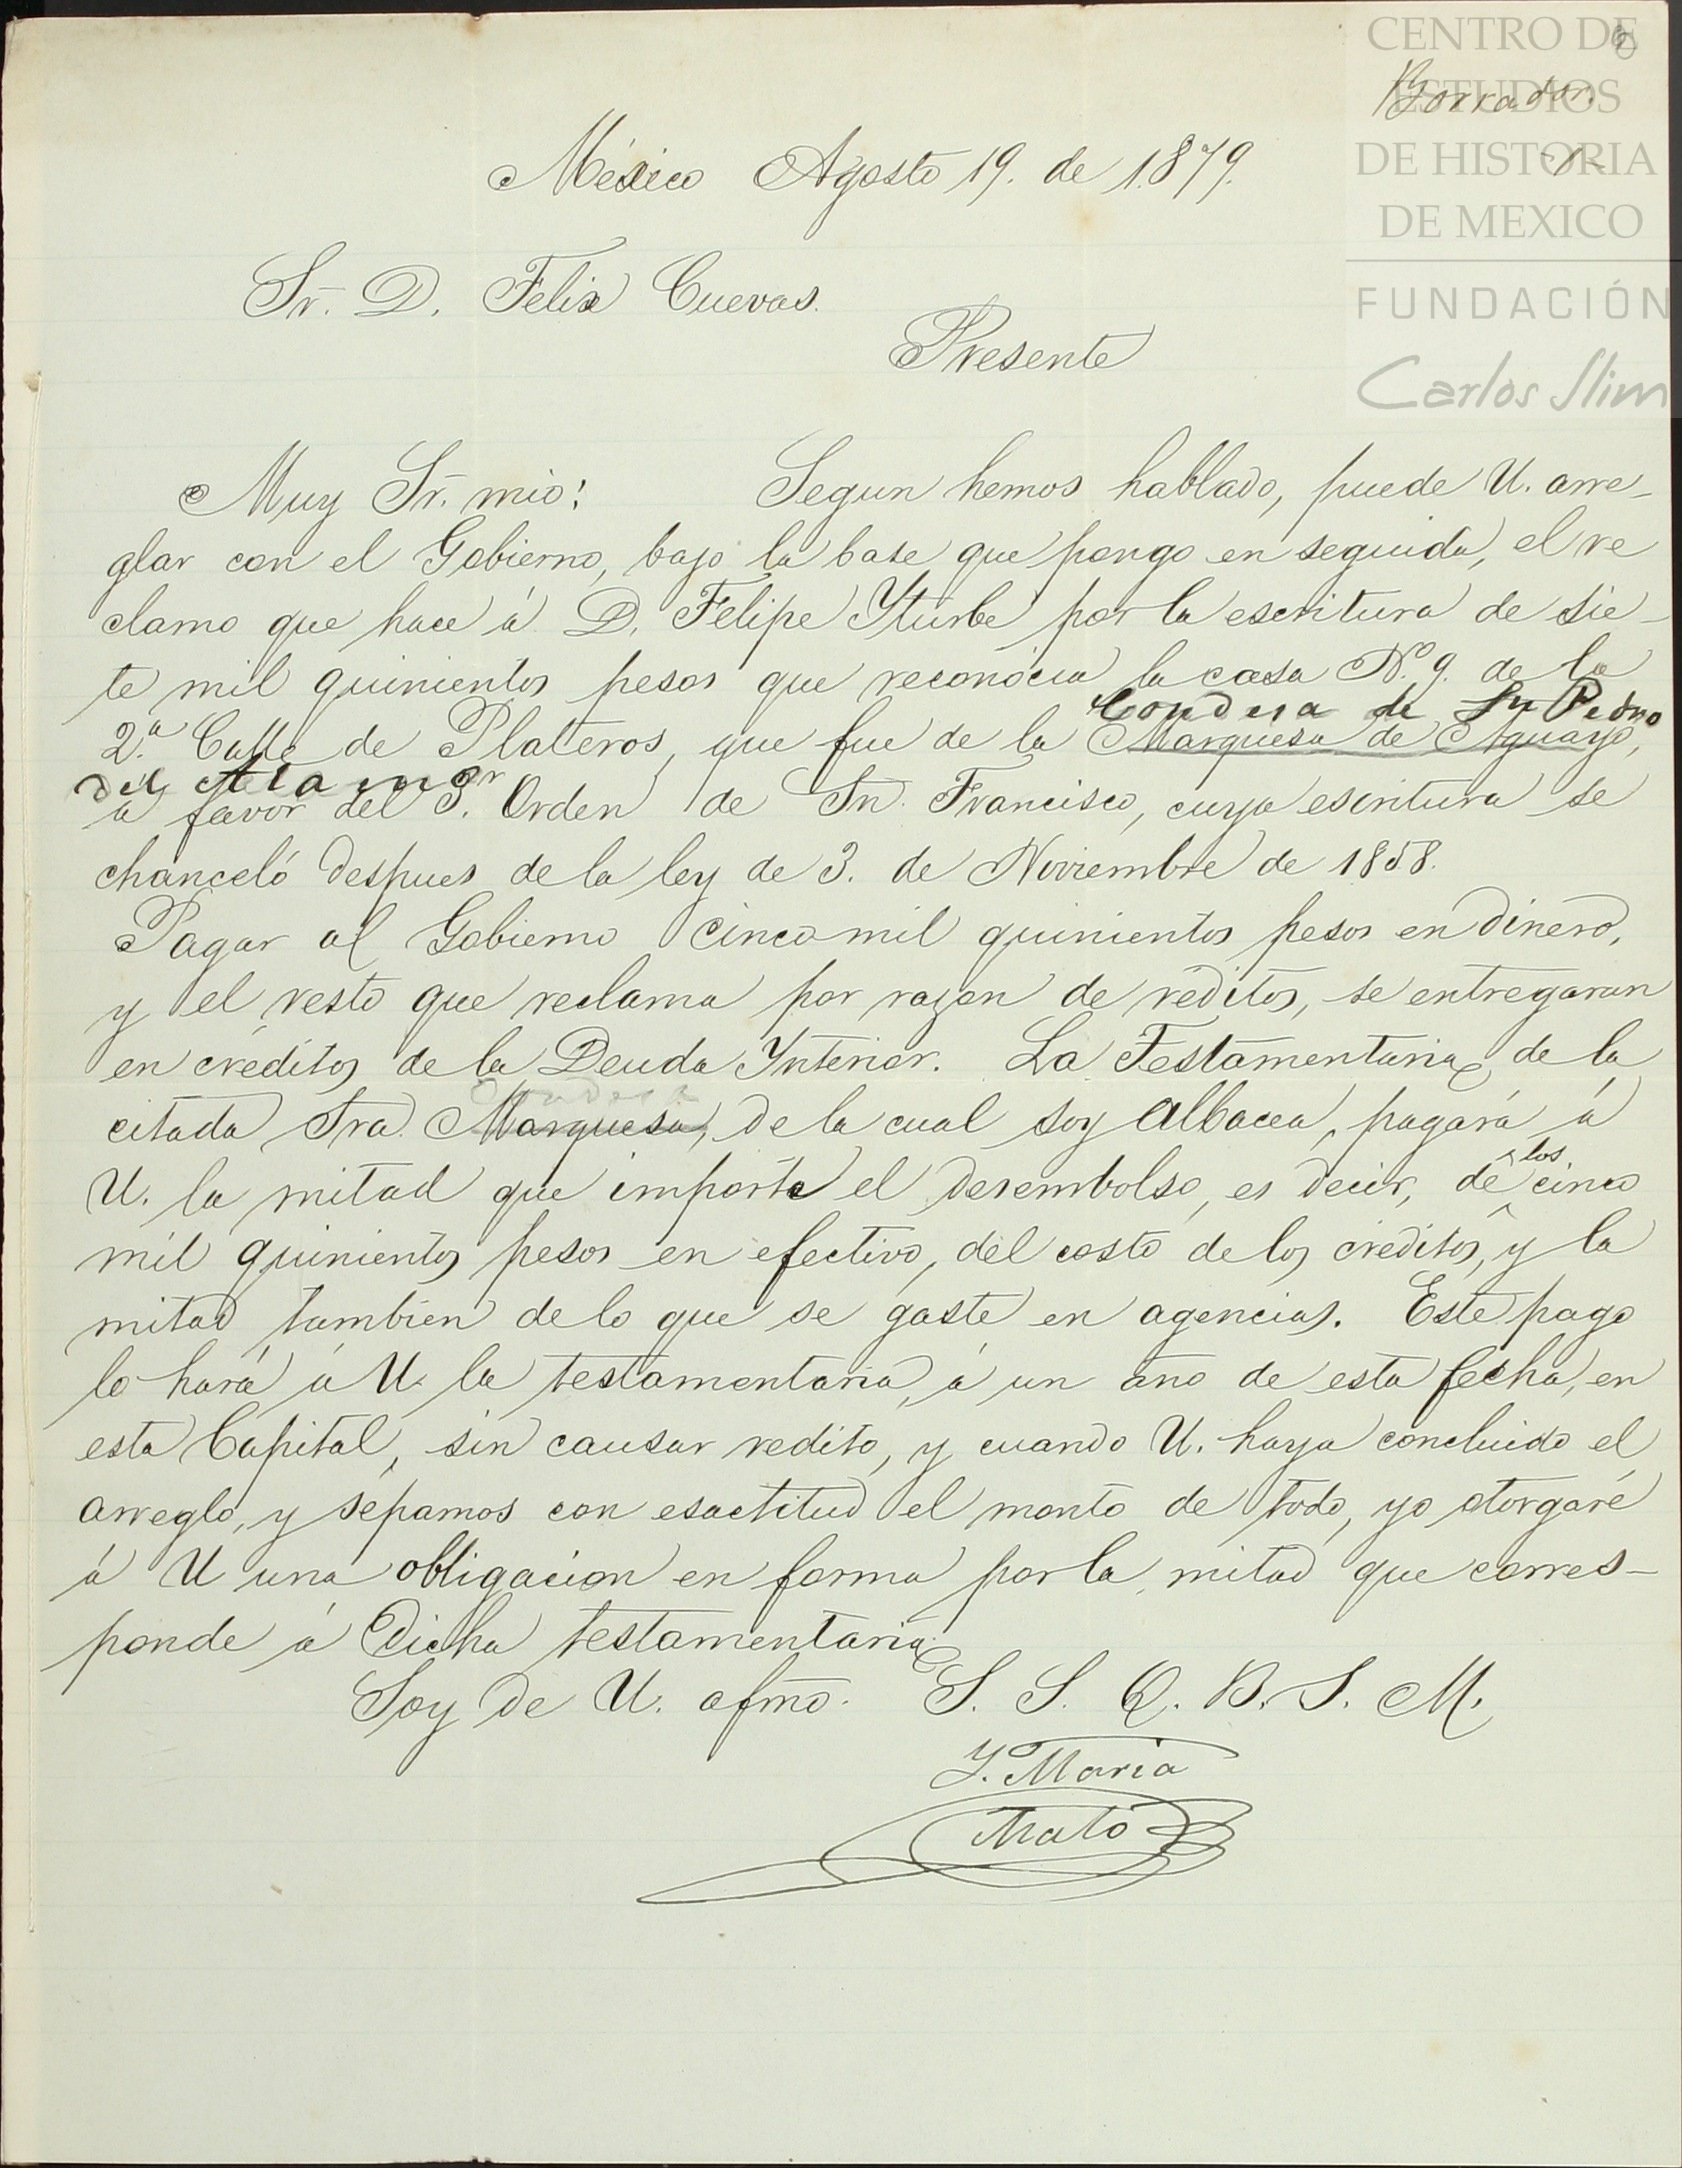 CENTRO DE
ESTUDIOS
DE HISTORIA
DE MEXICO
FUNDACIÓN
Carlos Slim
Borrador.
-1-
México Agosto 19. de 1879.
Sr. D. Felix Cuevas.
Presente
Muy Sr. mio: Segun hemos hablado, puede U. arre-
glar con el Gobierno, bajo la base que pongo en seguida, el re
clamo que hace á D. Felipe Yturbe por la escritura de sie-
te mil quinientos pesos que reconócia la casa N.º 9. de la
Condesa de Sn Pedro
2.ª Calle de Plateros, que fue de la Marquesa de Aguayo,
del Alamo
á favor del 3.r Orden de Sn. Francisco, cuya escritura se
chanceló despues de la ley de 3. de Noviembre de 1858.
Pagar al Gobierno cinco mil quinientos pesos en dinero,
y el resto que reclama por razon de réditos, se entregaran
en créditos de la Deuda Ynterior. La Testamentaria de la
Condesa
citada Sra. Marquesa, de la cual soy Albacea, pagará á
U. la mitad que importe el desembolso, es decir, de los cinco
mil quinientos pesos en efectivo, del costo de los créditos, y la
mitad tambien de lo que se gaste en agencias. Este pago
lo hará á U. la testamentaria, á un año de esta fecha, en
esta Capital, sin causar redito, y cuando U. haya concluido el
arreglo, y sépamos con esactitud el monto de todo, yo otorgaré
á U una obligacion en forma por la mitad que corres-
ponde á dicha testamentaria.
Soy de U. afmo. S. S. Q. B. S. M.
Y. Maria